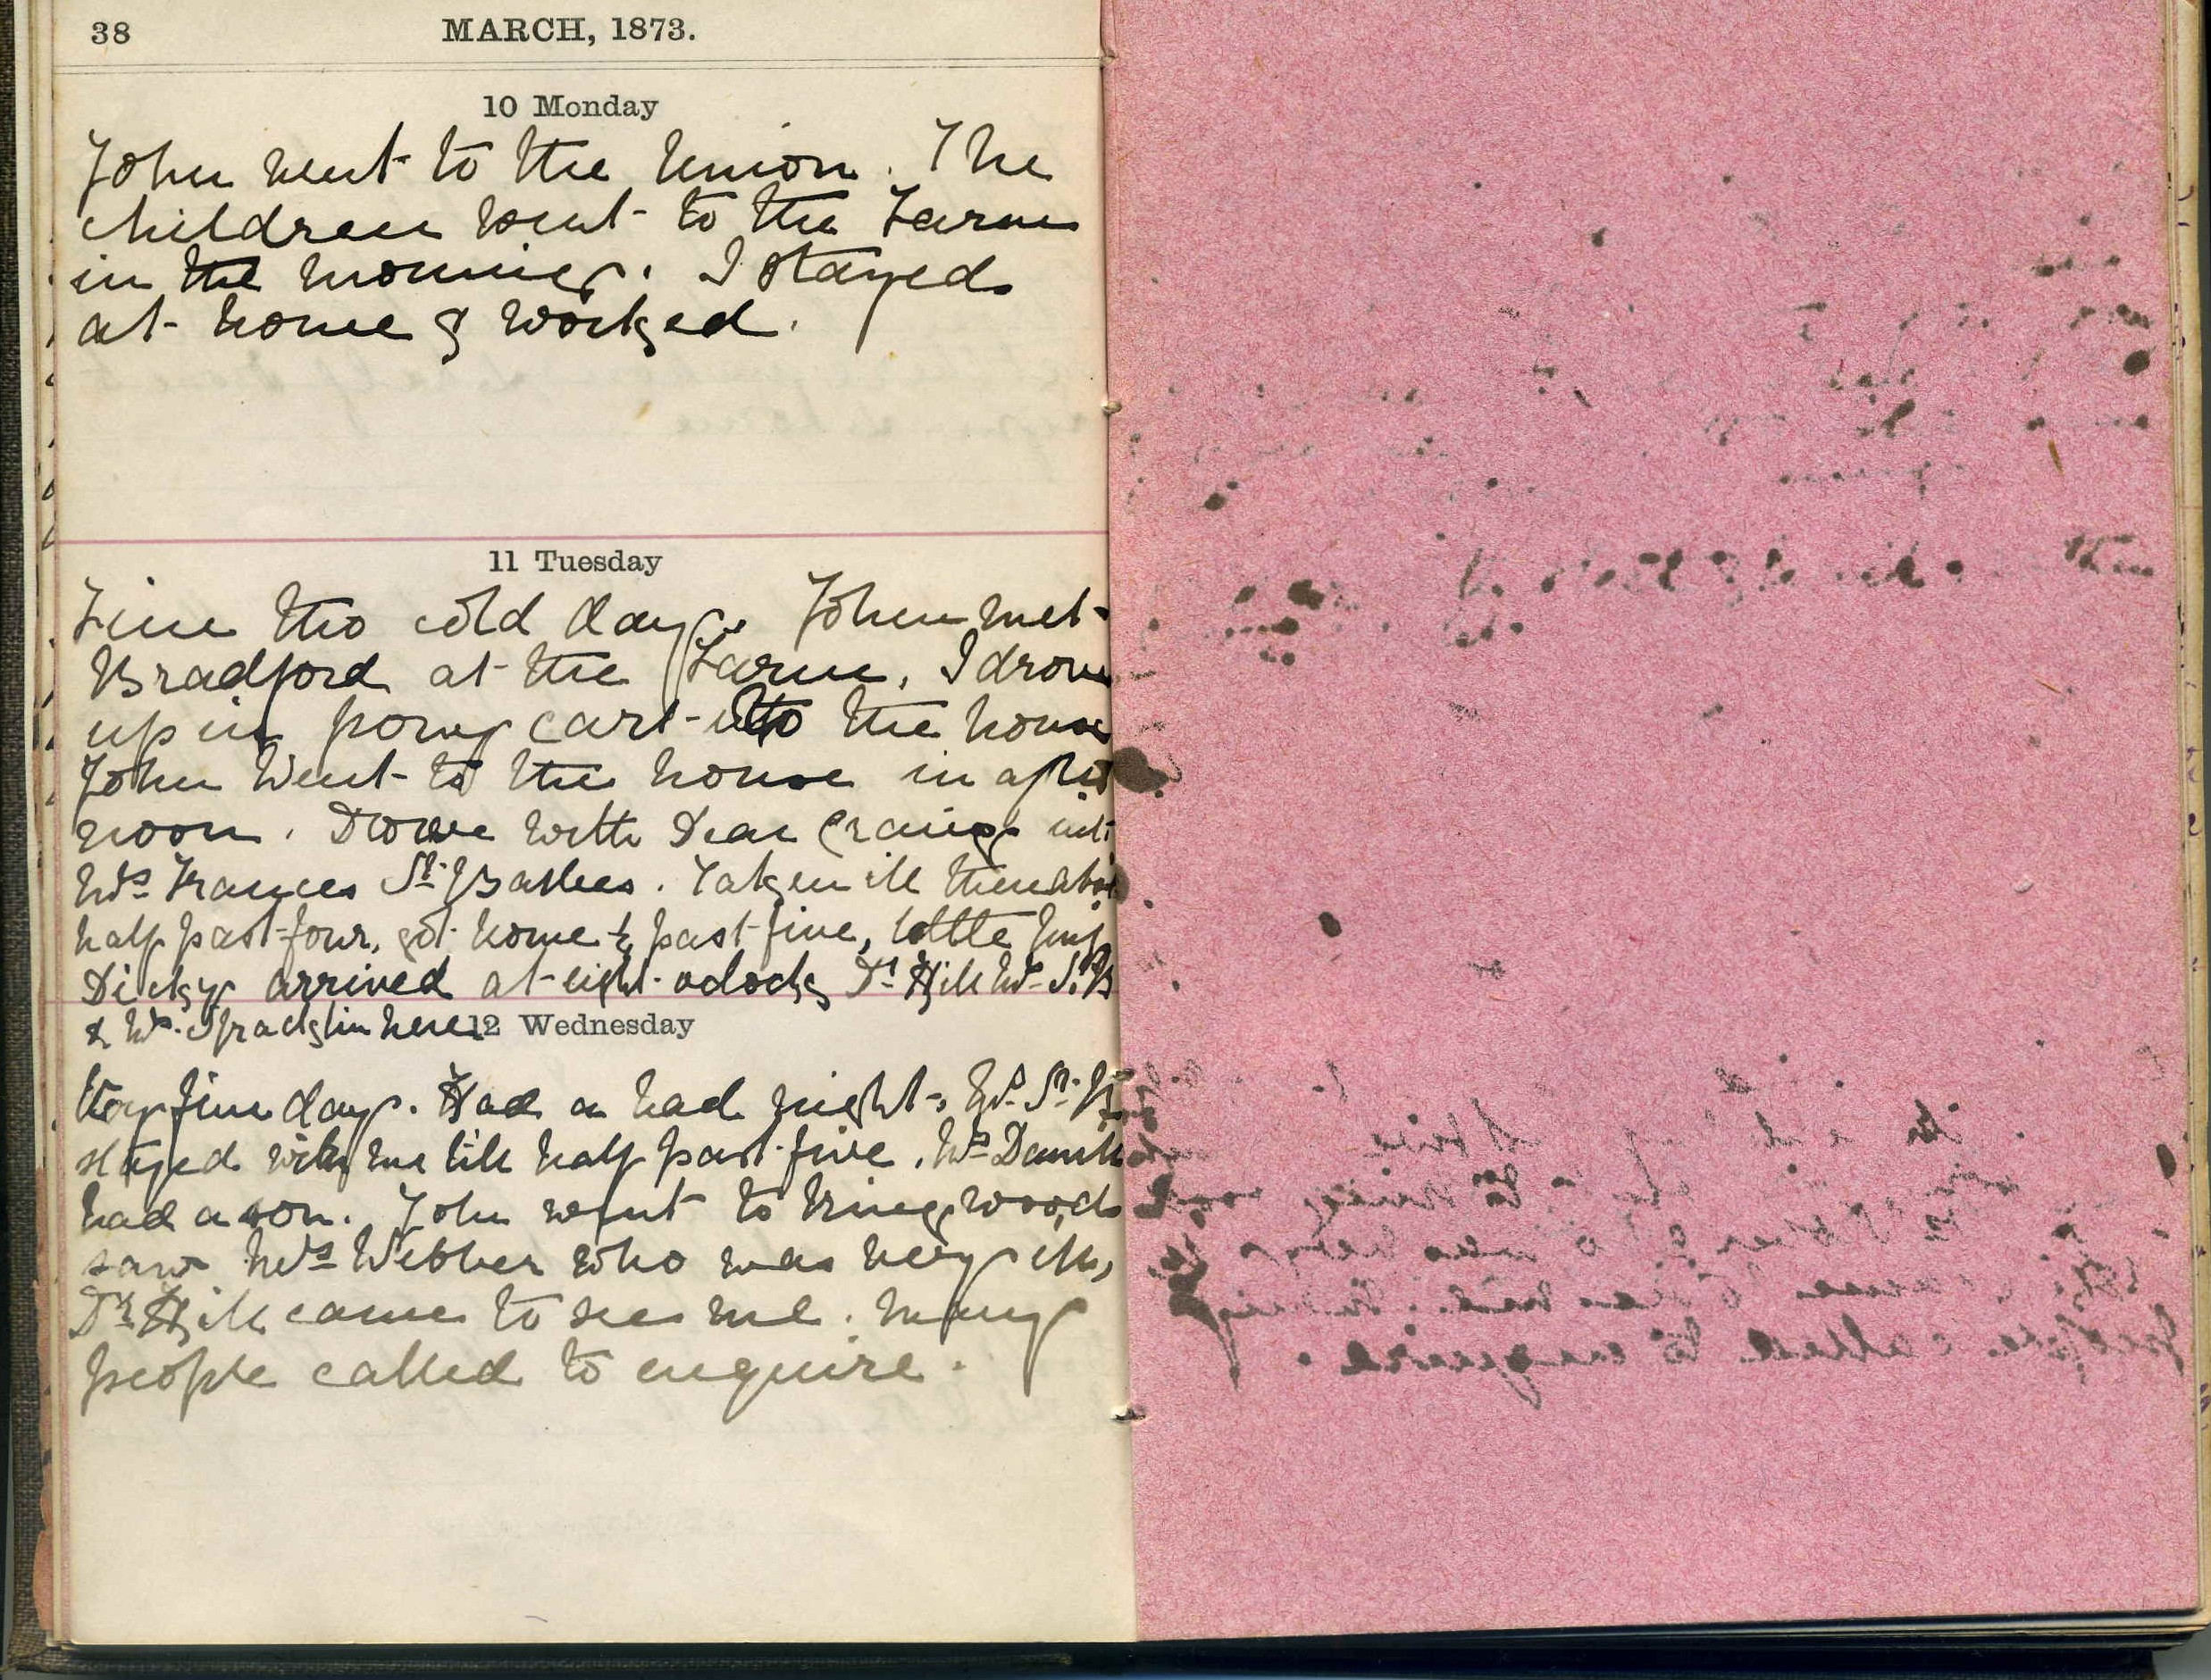 38 MARCH, 1873.
10 Monday
John went to the Union. The
children went to the Farm
in the morning. I stayed
at home & worked.
11 Tuesday
Fine tho cold day. John met
Bradford at the Farm. I drove
up in pony cart to the house
John went to the house in after
noon. Drove with Dear Craing
Mrs Frances St. Barbes. Taken ill then abo
half past four, got home ½ past five, little
Dicky arrived at eight oclock Dr Hill Mrs St. B
& Mrs. Spracklin here
12 Wednesday
Very fine day. Had a bad night, Mrs St. B
stayed with me till half past five. Mrs
had a son. John went to Ringwood
saw Mrs Webber who was very ill,
Dr Hill came to see me. Many
people called to enquire.